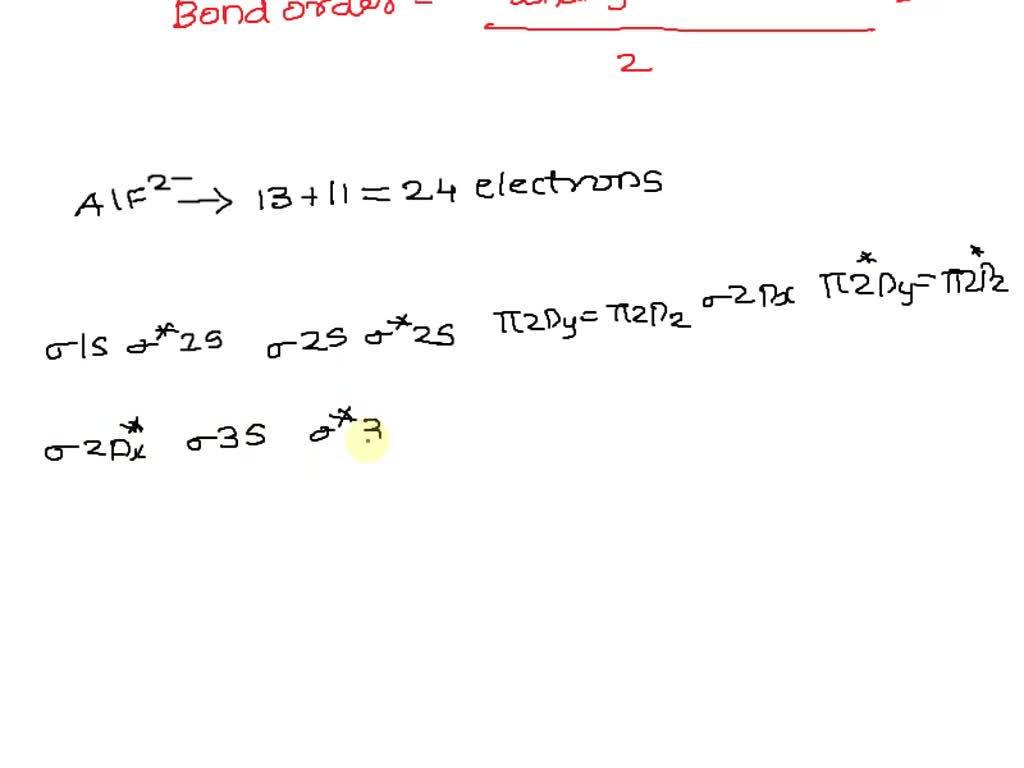 Bond order =
2
AlF²⁻ → 13 + 11 = 24 electrons
σ1s σ*2s σ2s σ*2s π2py = π2pz σ2px π2*py = π2*pz
σ2px* σ3s σ*3